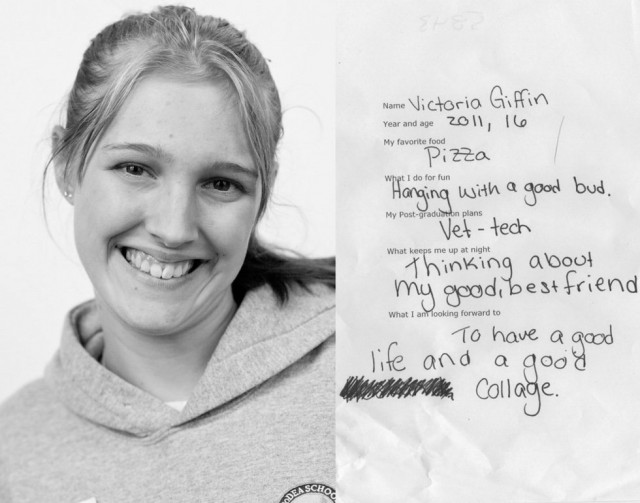 Name Victoria Giffin
Year and age 2011, 16
My favorite food
Pizza
What I do for fun
Hanging with a good bud.
My Post-graduation plans
Vet-tech
What keeps me up at night
Thinking about
my good, best friend
What I am looking forward to
To have a good
life and a good
Collage.
ODEA SCHOO